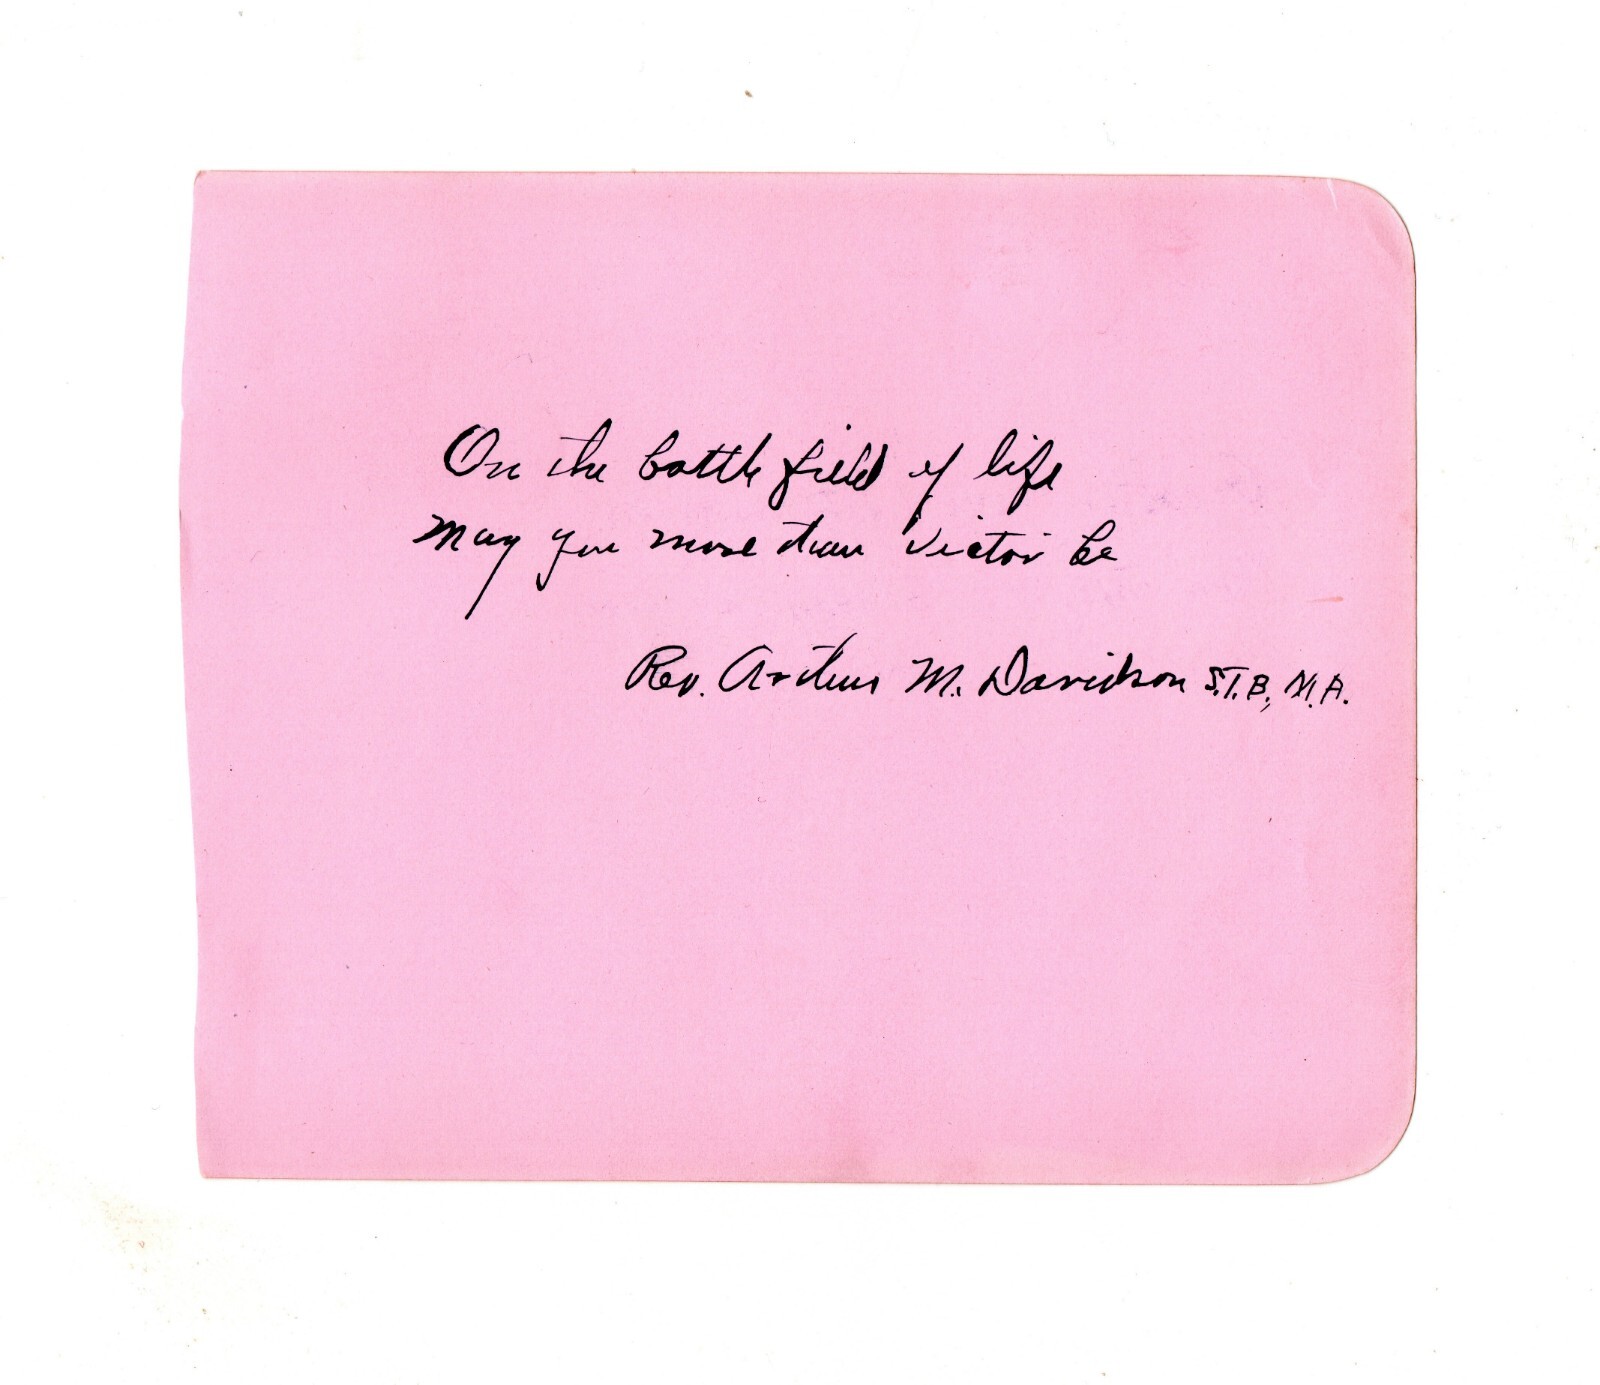 On the battle field of life
May you more than victor be
Rev. Arthur M. Davidson S.T.B., M.A.